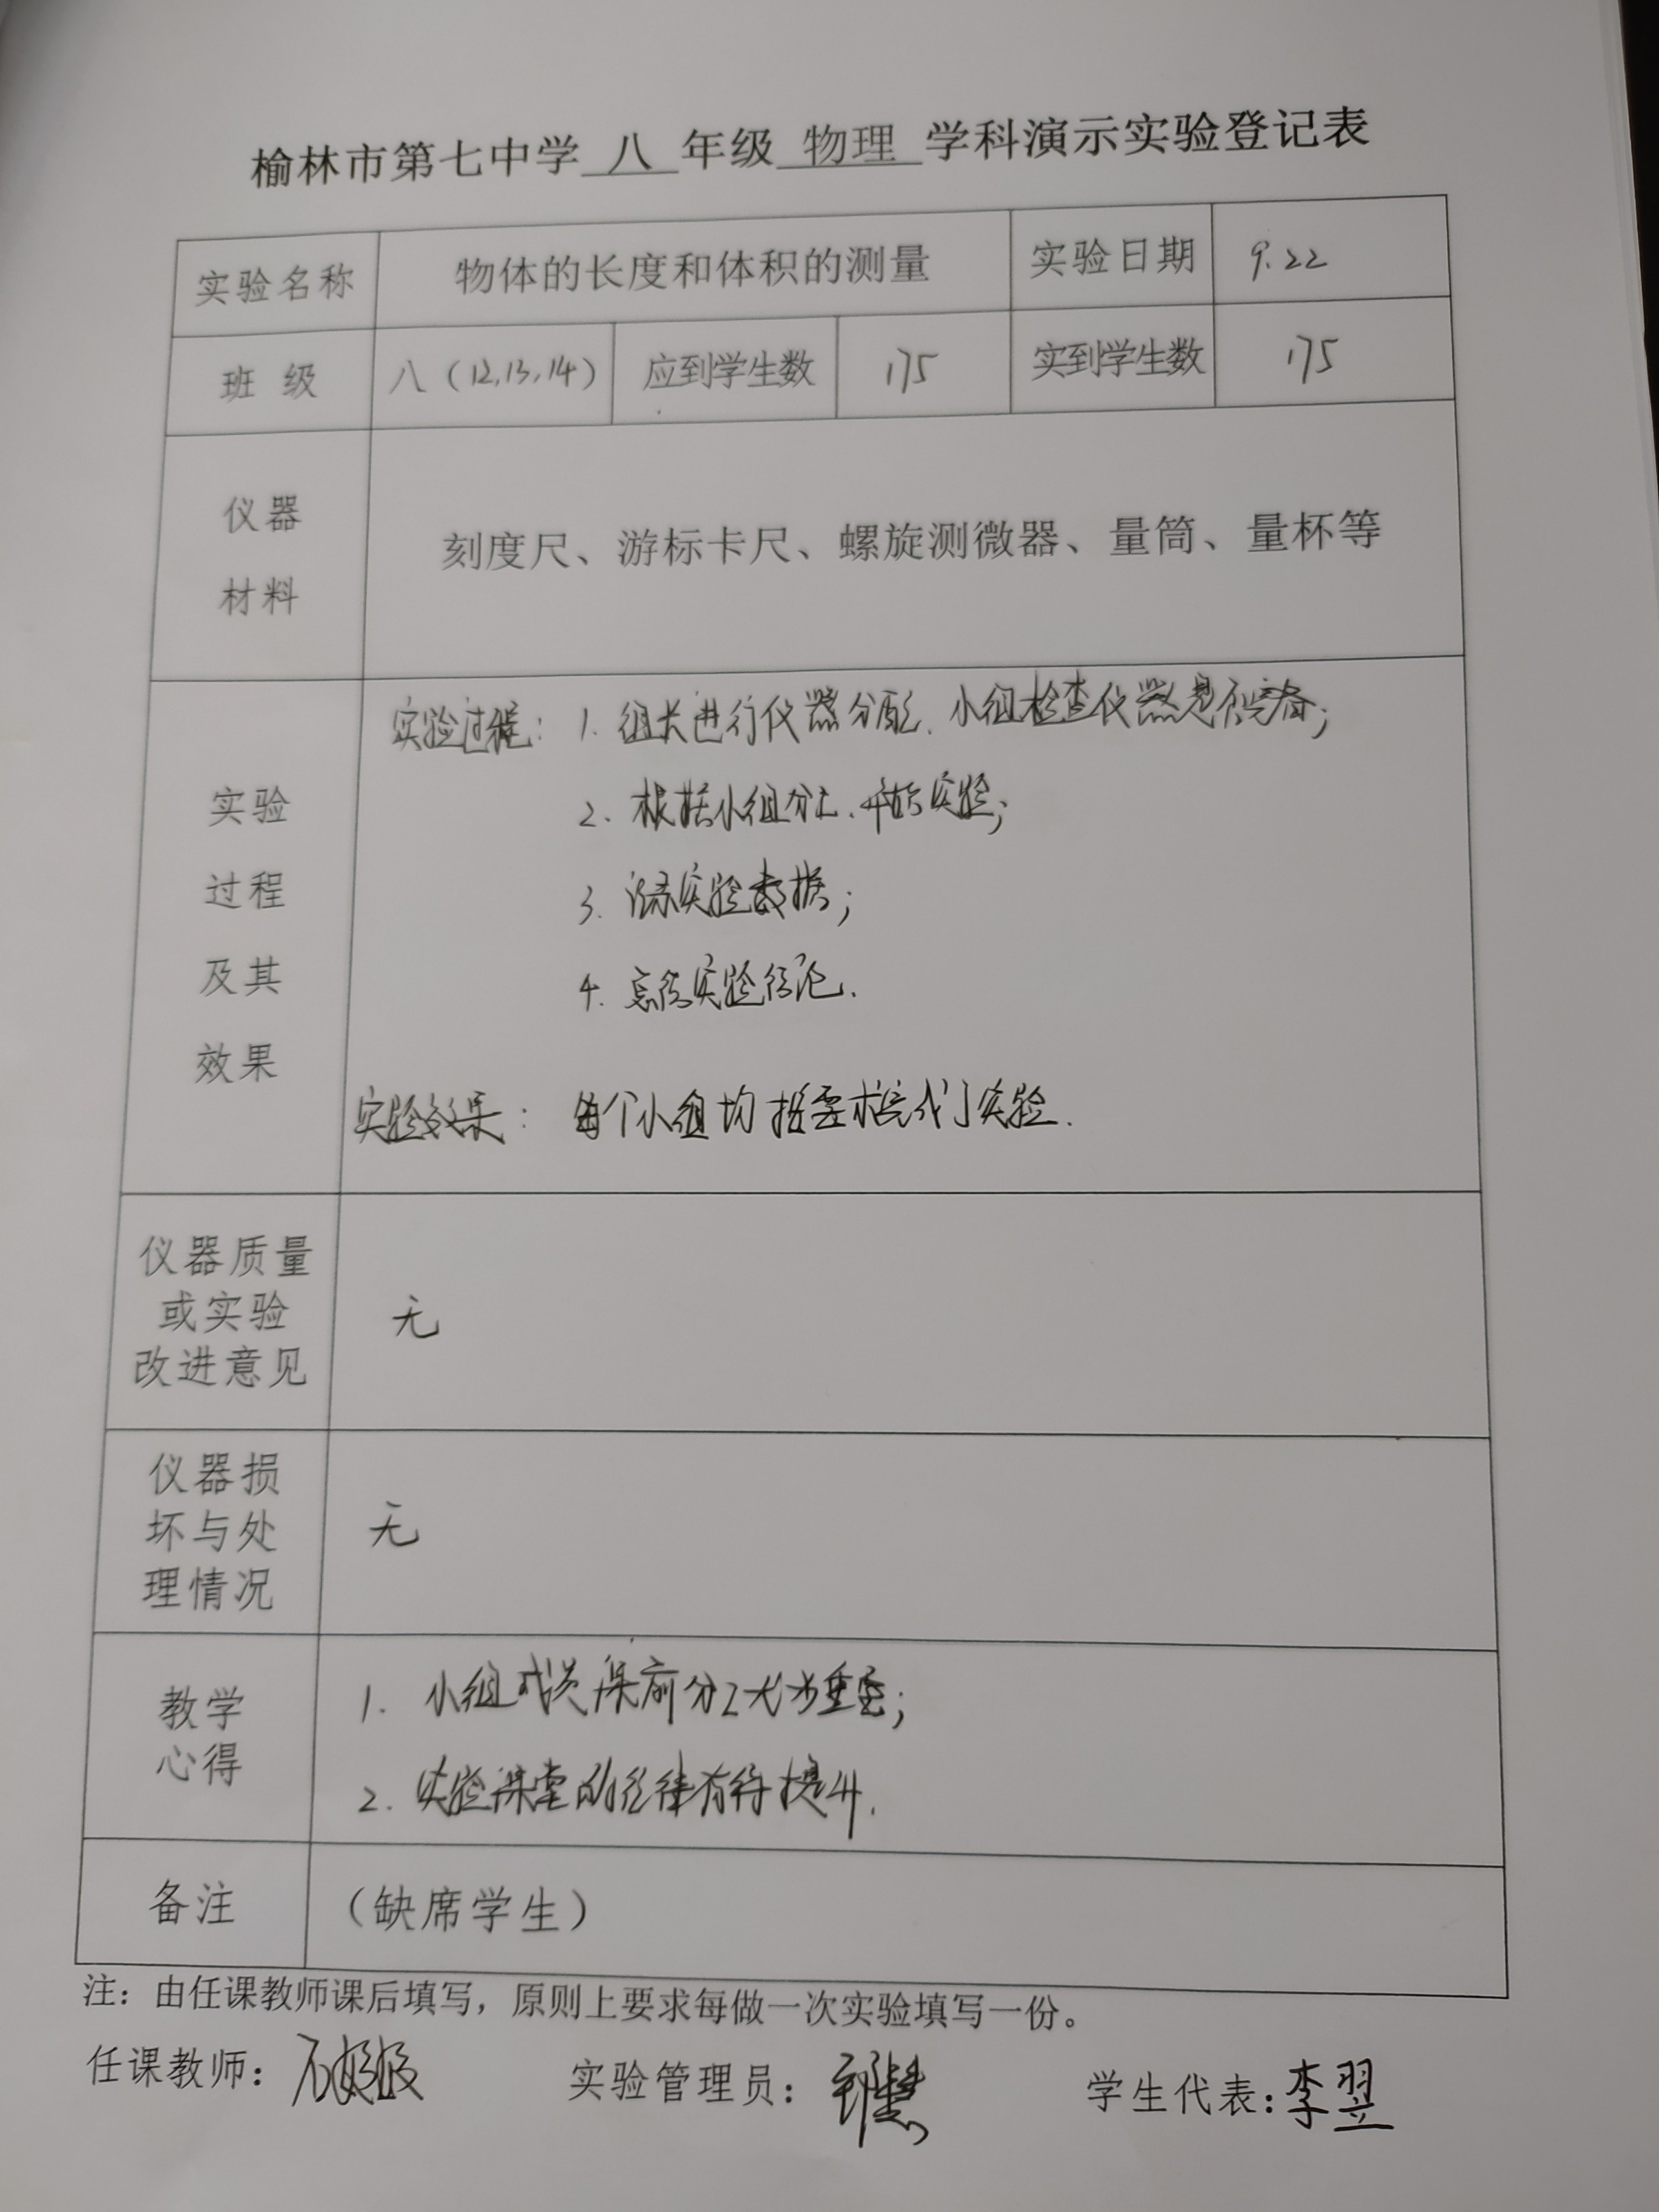 榆林市第七中学 八 年级 物理 学科演示实验登记表
实验名称 物体的长度和体积的测量 实验日期 9.22
班 级 八（12,13,14） 应到学生数 175 实到学生数 175
仪器
材料
刻度尺、游标卡尺、螺旋测微器、量筒、量杯等
实验
过程
及其
效果
实验过程：1. 组长进行仪器分配、小组检查仪器是否完备；
2. 根据小组分工、开始实验；
3. 记录实验数据；
4. 总结实验结论.
实验效果：每个小组均按要求完成了实验.
仪器质量
或实验
改进意见
无
仪器损
坏与处
理情况
无
教学
心得
1. 小组成员课前分工尤为重要；
2. 实验课堂的纪律有待提升.
备注 （缺席学生）
注：由任课教师课后填写，原则上要求每做一次实验填写一份。
任课教师： 实验管理员： 学生代表：李翌